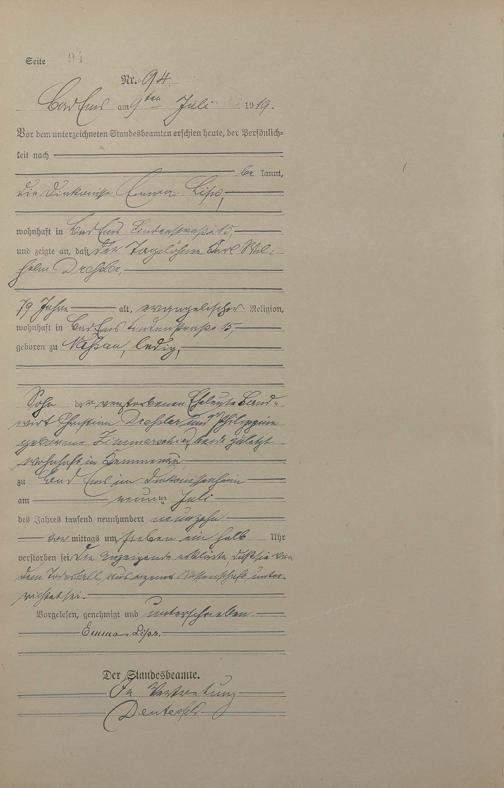 Seite 94
Nr. 94
Bad Ems am 9ten Juli 1919.
Vor dem unterzeichneten Standesbeamten erschien heute, der Persönlich-
keit nach
be kannt,
die Diakonisse Emma
wohnhaft in Bad Ems Lindenstraße 15,
und zeigte an, daß der Tagelöhner Karl Wil-
helm Drexler,
79 Jahre alt, evangelischer Religion,
wohnhaft in Bad Ems Lindenstraße 15,
geboren zu Nassau, ledig,
Sohn der verstorbenen Eheleute Land-
wirt Christian Drexler und Philippine
geborene beide zuletzt
wohnhaft in
zu Bad Ems im Diakonissenheim
am neunten Juli
des Jahres tausend neunhundert neunzehn
vor mittags um sieben ein halb Uhr
verstorben sei. Die Anzeigende erklärte, daß sie von
dem Todesfall aus eigener Wissenschaft unter-
richtet sei.
Vorgelesen, genehmigt und unterschrieben
Emma
Der Standesbeamte.
In Vertretung